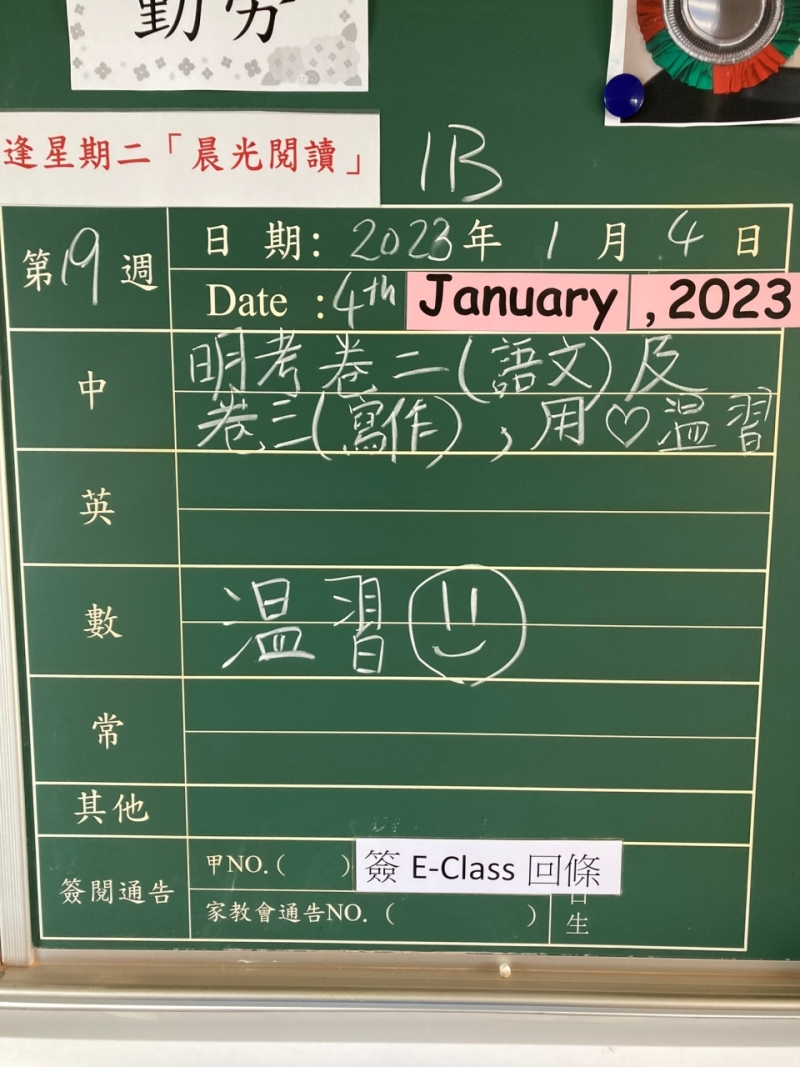 勤勞
逢星期二「晨光閱讀」
1B
第19週
日期：2023年1月4日
Date : 4th January, 2023
中
明考卷二（語文）及
卷三（寫作），用♡温習
英
數
温習
常
其他
簽閱通告
甲NO.( )
簽 E-Class 回條
家教會通告NO.( )
生